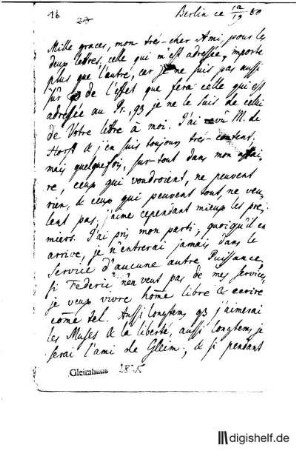 16
Berlin ce 12/19 80
Mille graces, mon très-cher Ami, pour les
deux lettres, celle qui m'est adressée, importe
plus que l'autre, car je ne suis pas aussi
sur de l'effet que fera celle qui est
adressée au Pr. que je ne le suis de celui
de Votre lettre à moi. J'ai revu M. de
Horst & j'en suis toujours très-content.
mais quelquefois, sur-tout dans mon affai,
re, ceux qui voudroient, ne peuvent
rien, & ceux qui peuvent tout, ne veu,
lent pas, j'aime cependant mieux les pre,
miers. J'ai pris mon parti, quoiqu'il en
arrive, je n'entrerai jamais dans le
service d'aucune autre Puissance,
si Federic n'en veut pas de mes services,
je veux vivre home libre & ecrire
côme tel. Aussi longtem que j'aimerai
les Muses & la liberté, aussi longtem je
serai l'ami de Gleim, & si pendant
Gleimhaus
digishelf.de